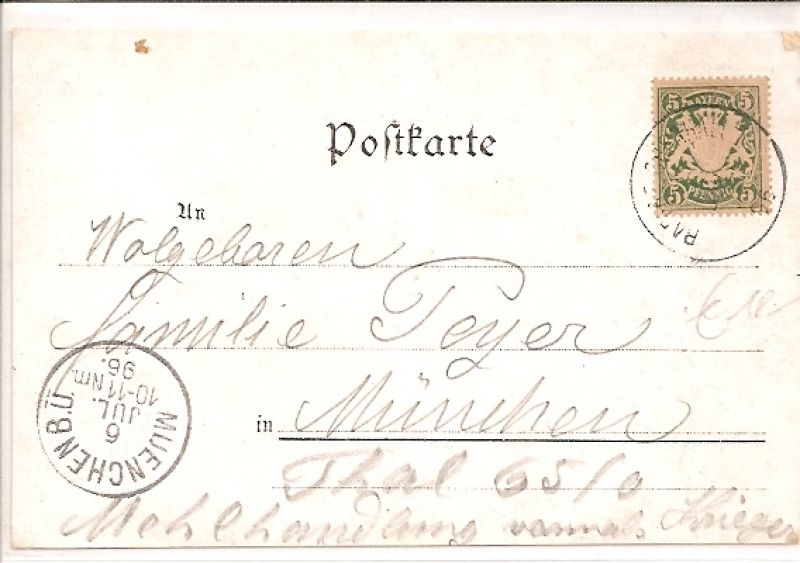 Postkarte
5 BAYERN 5
5 PFENNIG 5
An
Wolgeboren
Familie Peyer
in München
Thal 65/0
Mehlhandlung vormals Krieger
MUENCHEN B.Ü.
6
JUL.
10-11 Nm.
96.